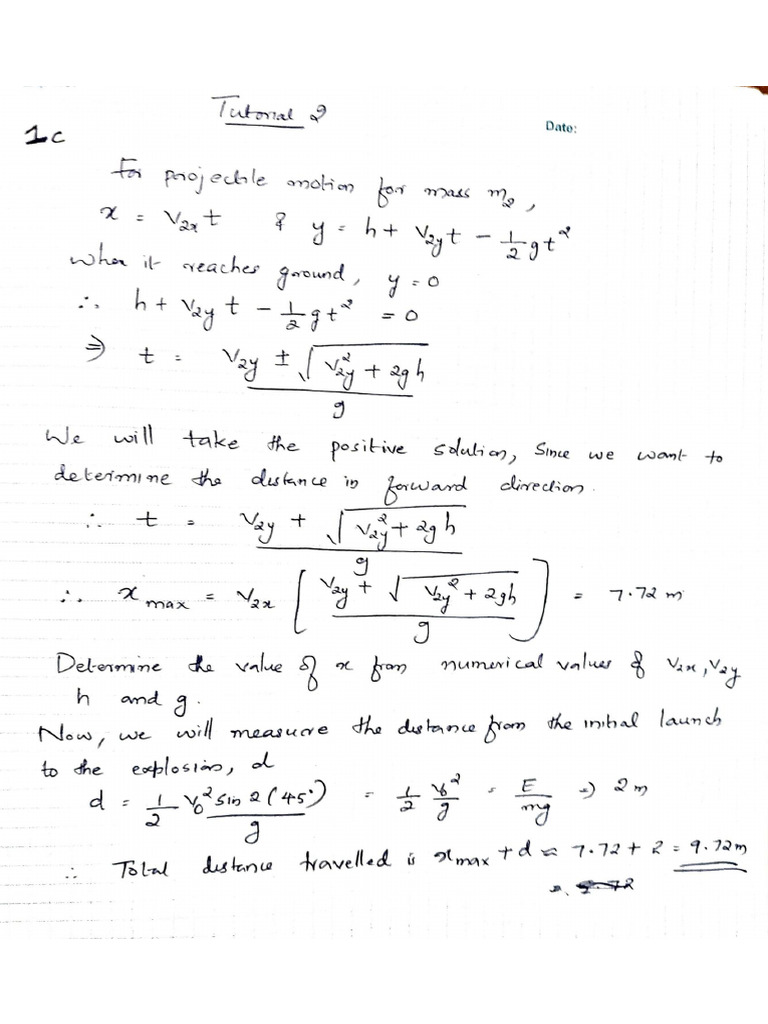 Tutorial 2
Date:
1c
For projectile motion for mass m₂,
x = V₂ₓt & y = h + V₂yt − 1/2 gt²
When it reaches ground, y = 0
∴ h + V₂y t − 1/2 gt² = 0
⇒ t = (V₂y ± √(V₂y² + 2gh)) / g
We will take the positive solution, Since we want to
determine the distance in forward direction.
∴ t = (V₂y + √(V₂y² + 2gh)) / g
∴ x max = V₂ₓ [ (V₂y + √(V₂y² + 2gh)) / g ] = 7.72 m
Determine the value of x from numerical values of V₂ₓ, V₂y
h and g.
Now, we will measure the distance from the initial launch
to the explosion, d
d = 1/2 V₀² Sin 2(45°) / g = 1/2 V₀²/g = E/mg ⇒ 2m
∴ Total distance travelled is x max + d = 7.72 + 2 = 9.72m